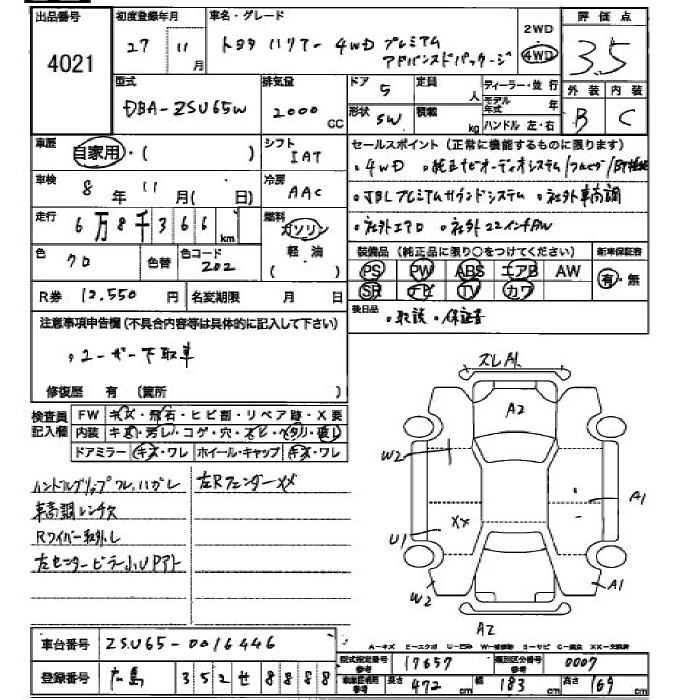 出品番号
4021
初度登録年月
27 11月
車名・グレード
トヨタ ハリアー 4WD プレミアム
アドバンスドパッケージ
2WD
4WD
評価点
3.5
外装 内装
B C
型式
DBA-ZSU65W
排気量
2000 CC
ドア 5
形状 SW
定員 人
積載 kg
ディーラー・並行
モデル年式 年
ハンドル 左・右
車歴
自家用・( )
シフト
IAT
車検
8年 11月( 日)
冷房
AAC
走行
6万8千366km
燃料
ガソリン
軽油
( )
色
クロ
色替
色コード
202
R券 12,550円
名変期限 月 日
セールスポイント(正常に機能するものに限ります)
・4WD ・純正ナビオーディオシステム/フルセグ/BT接続
・JBLプレミアムサウンドシステム ・社外車高調
・社外エアロ ・社外22インチAW
装備品(純正品に限り○をつけてください)
新車保証書
PS PW ABS エアB AW
SR ナビ TV カワ
有・無
後日品
・取説 ・保証書
注意事項申告欄(不具合内容等は具体的に記入して下さい)
・ユーザー下取車
修復歴 有 (箇所 )
検査員
記入欄
FW キズ・飛石・ヒビ割・リペア跡・X要
内装 キズ・汚レ・コゲ・穴・スレ・ヘタリ・破レ
ドアミラー キズ・ワレ ホイール・キャップ キズ・ワレ
ハンドルグリップスレ、ハガレ
車高調レンチ欠
Rワイパー取外し
左センターピラー小UPアト
左RフェンダーXX
スレA1
A2
W2
A1
U1
XX
W2
A1
A2
A-キズ E-エクボ U-凹み W-補修跡 S-サビ C-腐食 XX-交換済
車台番号 ZSU65-0016446
登録番号 広島 352 せ 8888
型式指定番号参考 17657
類別区分番号参考 0007
車庫証明用参考 長さ 472cm 幅 183cm 高さ 169cm